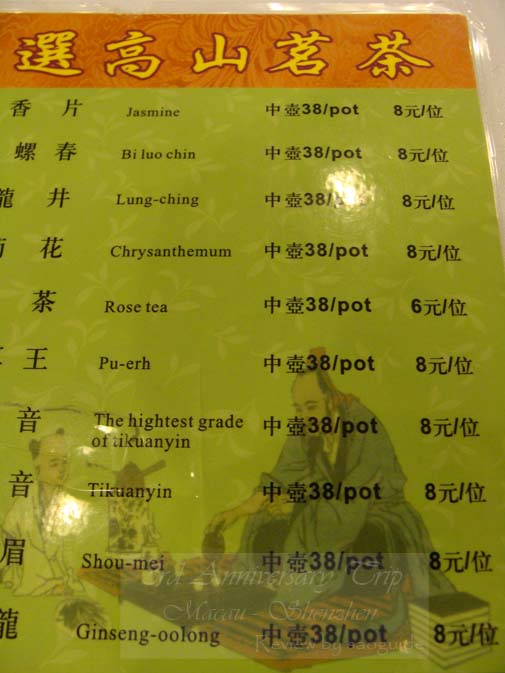 選高山茗茶
香片 Jasmine 中壺38/pot 8元/位
螺春 Bi luo chin 中壺38/pot 8元/位
龍井 Lung-ching 中壺38/pot 8元/位
花 Chrysanthemum 中壺38/pot 8元/位
茶 Rose tea 中壺38/pot 6元/位
王 Pu-erh 中壺38/pot 8元/位
音 The hightest grade of tikuanyin 中壺38/pot 8元/位
音 Tikuanyin 中壺38/pot 8元/位
眉 Shou-mei 中壺38/pot 8元/位
龍 Ginseng-oolong 中壺38/pot 8元/位
3rd Anniversary Trip
Macau - Shenzhen
Review by